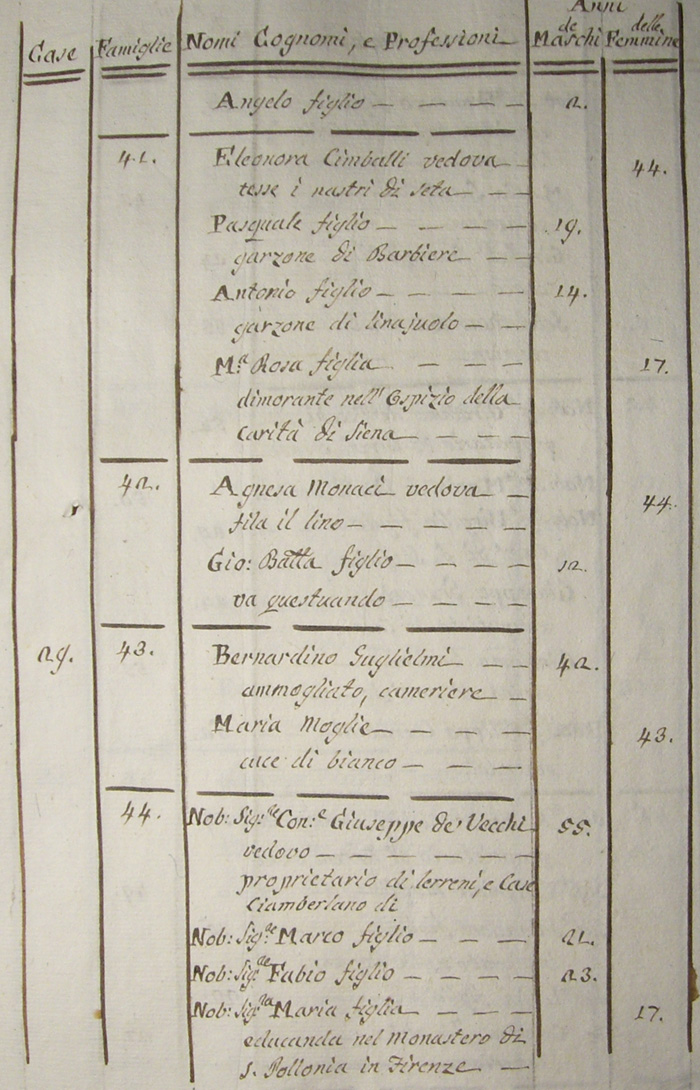 Anni
Case Famiglie Nomi Cognomi, e Professioni de Maschi delle Femmine
Angelo figlio — — — — 2.
41. Eleonora Cimballi vedova — 44.
tesse i nastri di seta — —
Pasquale figlio — — — — 19.
garzone di Barbiere — —
Antonio figlio — — — — 14.
garzone di linajuolo — — —
M.a Rosa figlia — — — 17.
dimorante nell' Ospizio della
Carità di Siena — — —
42. Agnesa Monaci vedova — 44.
fila il lino — — — — —
Gio: Batta figlio — — — — 12.
va questuando — — — —
29. 43. Bernardino Guglielmi — — 42.
ammogliato, cameriere —
Maria Moglie — — — — 43.
cuce di bianco — — — —
44. Nob: Sig.re Con.e Giuseppe de' Vecchi 55.
vedovo — — — — —
proprietario di terreni, e Case
Ciamberlano di
Nob: Sig.re Marco figlio — — — 21.
Nob: Sig.re Fabio figlio — — — — 23.
Nob: Sig.ra Maria figlia — — — 17.
educanda nel Monastero di
S. Pollonia in Firenze — —